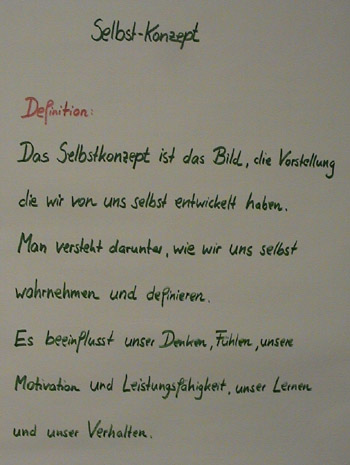 Selbst-Konzept
Definition:
Das Selbstkonzept ist das Bild, die Vorstellung
die wir von uns selbst entwickelt haben.
Man versteht darunter, wie wir uns selbst
wahrnehmen und definieren.
Es beeinflusst unser Denken, Fühlen, unsere
Motivation und Leistungsfähigkeit, unser Lernen
und unser Verhalten.